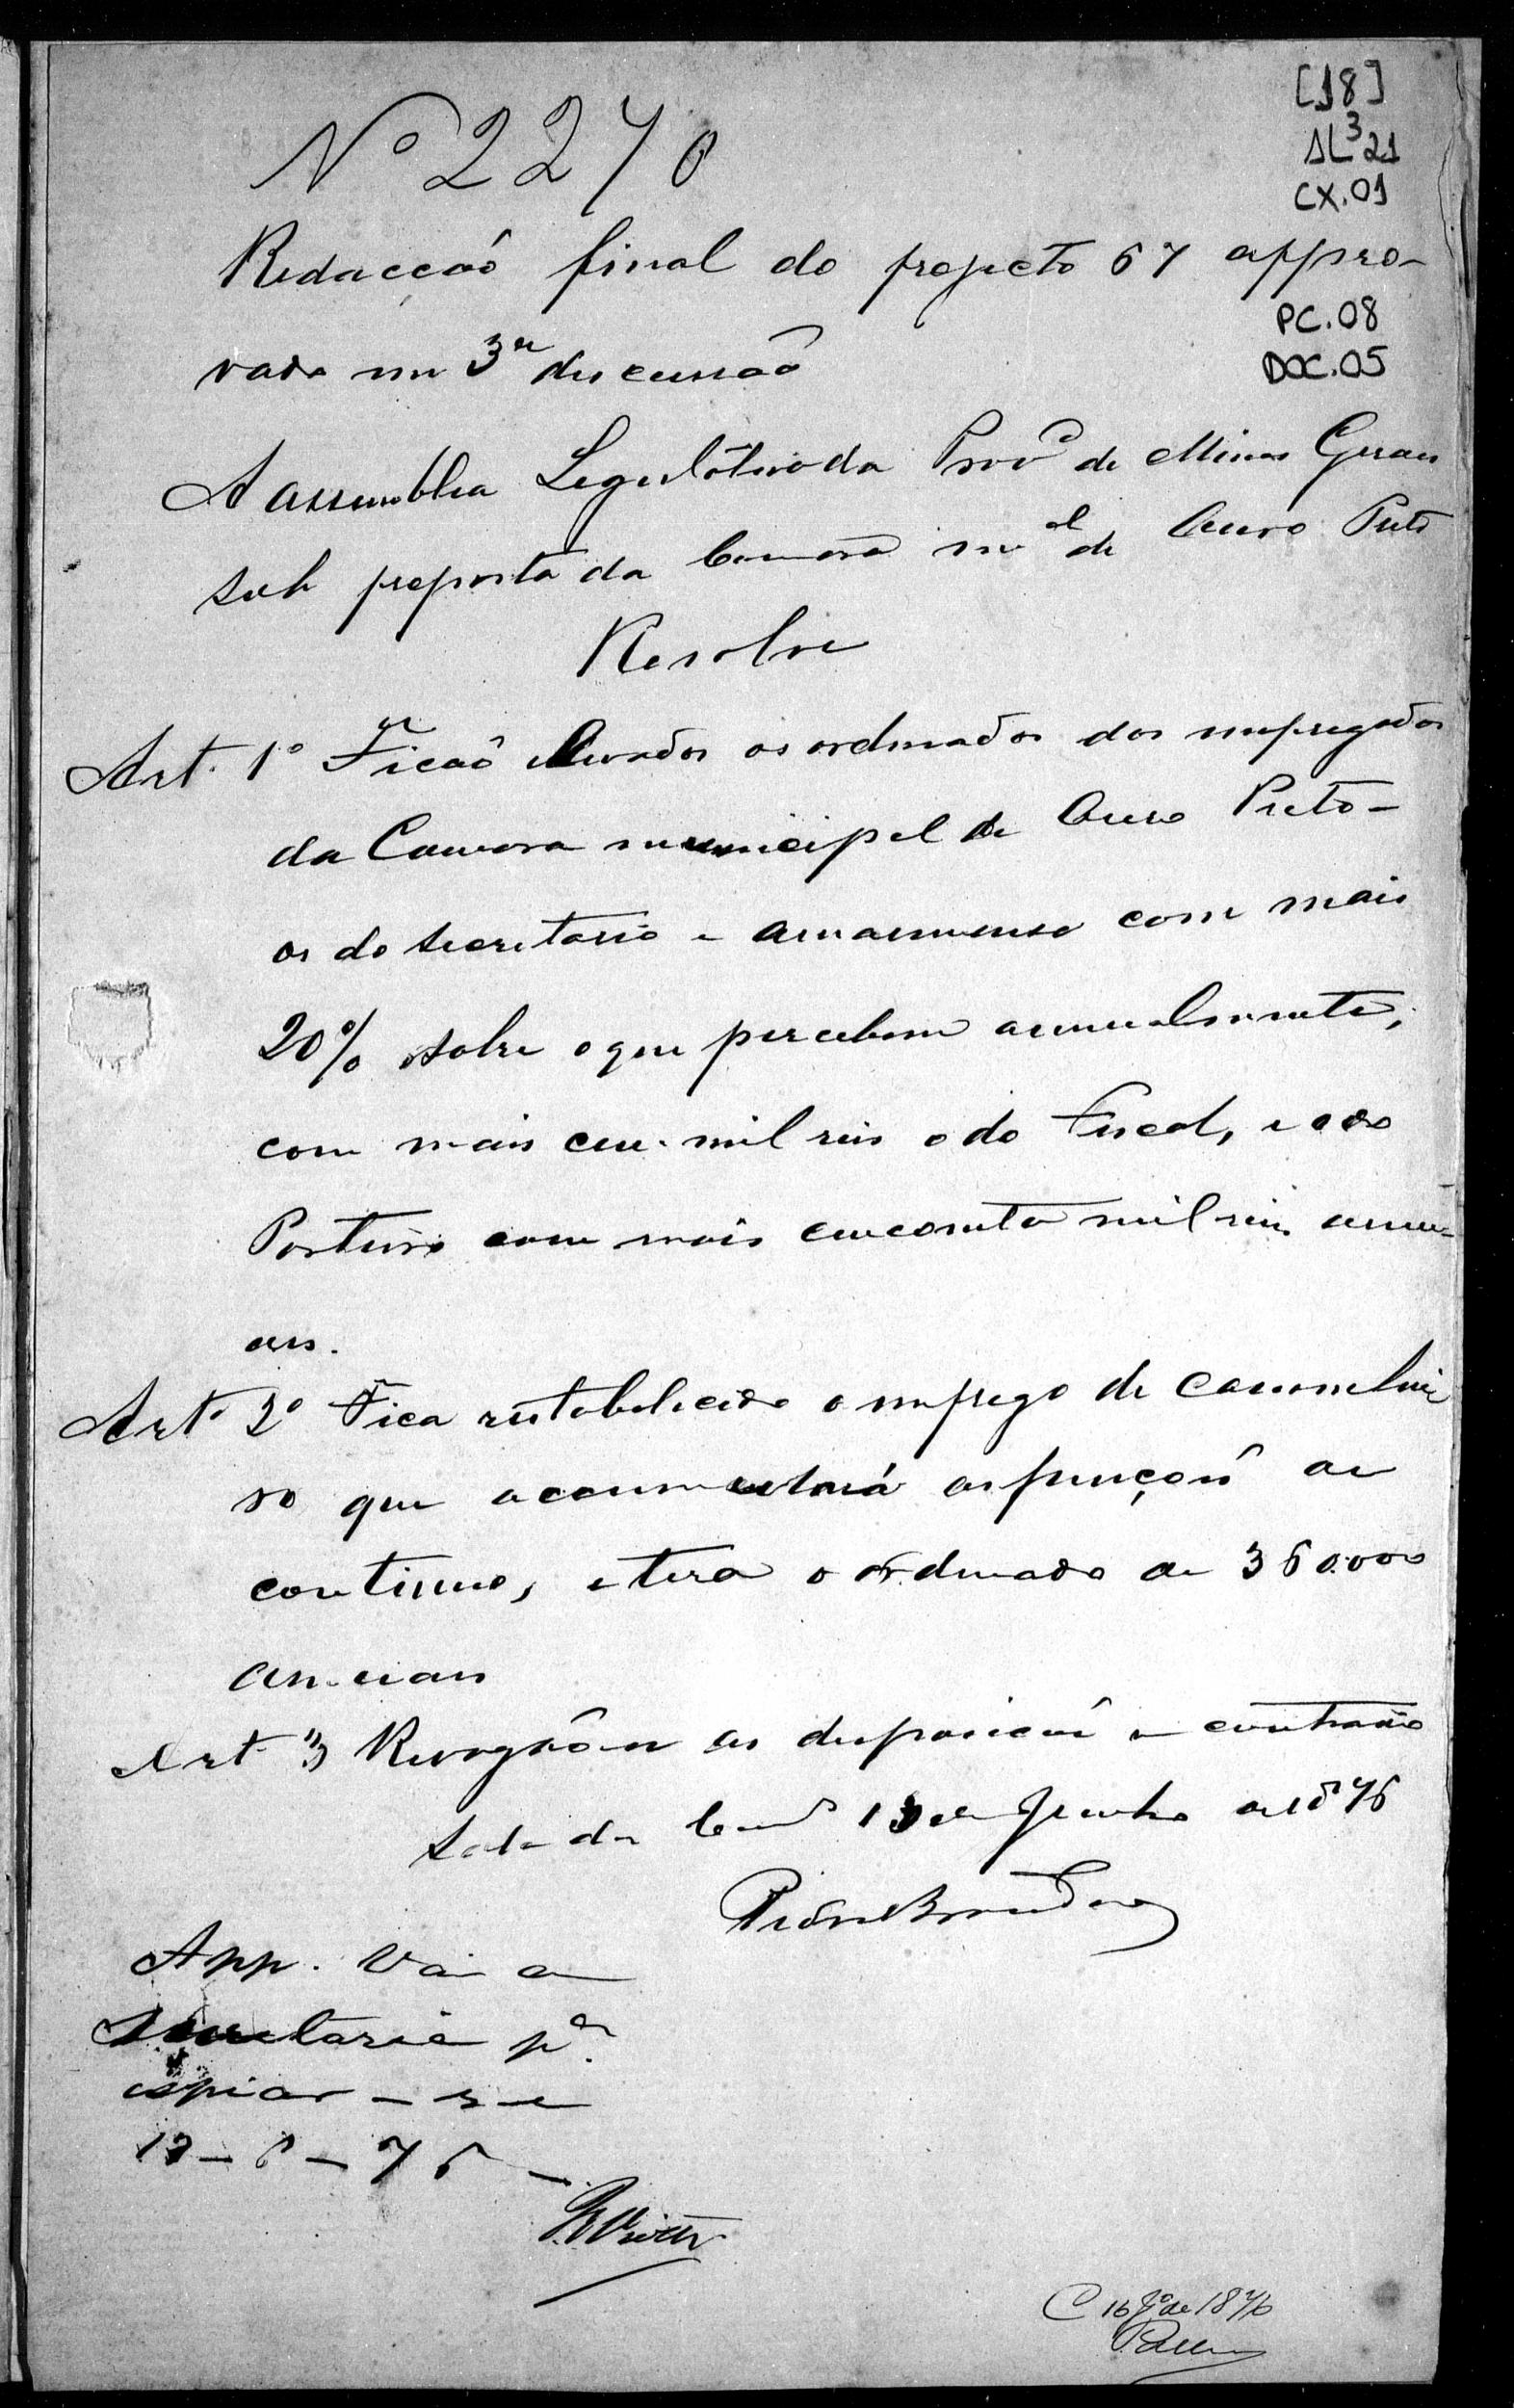 [18]
AL³21
CX.01
Nº 2270
Redacção final do projecto 67 appro-
PC.08
vado em 3ª discussaõ
DOC.05
A assemblea Legislativa da Provª de Minas Geraes
sob proposta da Camara mᵃˡ de Ouro Preto
Resolve
Art. 1º Ficaõ elevados os ordenados dos empregados
da Camara municipal de Ouro Preto -
os do secretario e amanuense com mais
20% sobre o que percebem annualmente,
com mais cem mil reis o do Fiscal, e o do
Porteiro com mais cincoenta mil reis annu-
aes.
Art. 2º Fica restabelecido o emprego de
que accumulará as funçoẽs de
continuo, e terá o ordenado de 360.000
annuaes
Art. 3 Revogaõ-se as disposicoẽs em contrario
Sala das 13 de Junho de 1876
App. Vai a
Secretaria pª
espiar-se
13-6-76-
C 16 Jº de 1876